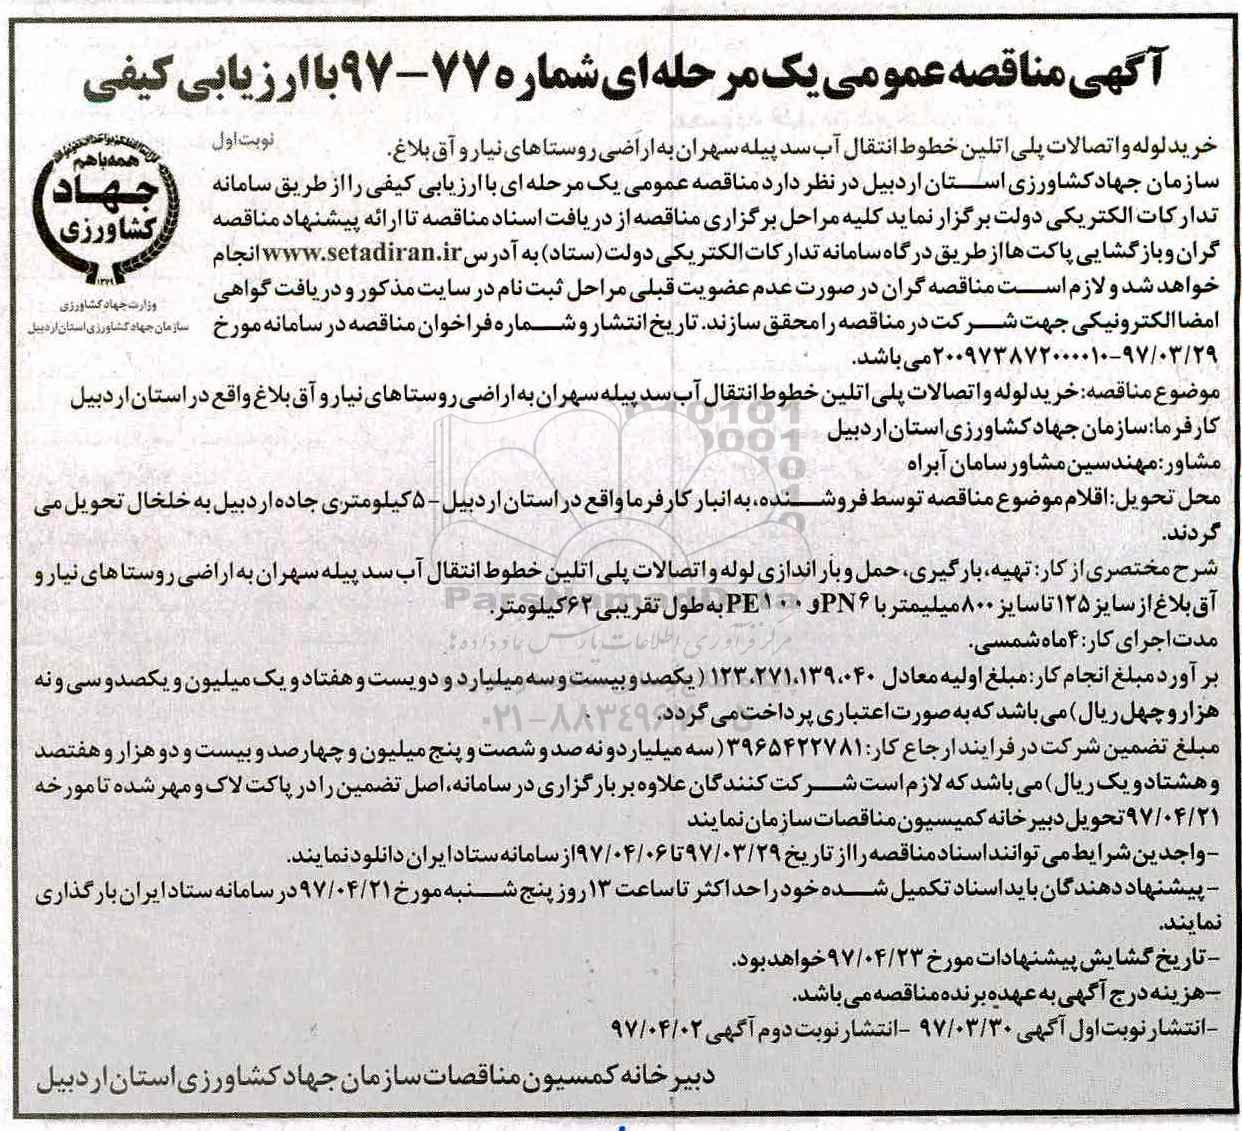 آگهی مناقصه عمومی یک مرحله ای شماره ۷۷-۹۷ با ارزیابی کیفی
نوبت اول
خرید لوله و اتصالات پلی اتلین خطوط انتقال آب سد پیله سهران به اراضی روستاهای نیار و آق بلاغ.
سازمان جهاد کشاورزی استان اردبیل در نظر دارد مناقصه عمومی یک مرحله ای با ارزیابی کیفی را از طریق سامانه
تدارکات الکتریکی دولت برگزار نماید کلیه مراحل برگزاری مناقصه از دریافت اسناد مناقصه تا ارائه پیشنهاد مناقصه
گران و بازگشایی پاکت ها از طریق درگاه سامانه تدارکات الکتریکی دولت (ستاد) به آدرس www.setadiran.ir انجام
خواهد شد و لازم است مناقصه گران در صورت عدم عضویت قبلی مراحل ثبت نام در سایت مذکور و دریافت گواهی
امضا الکترونیکی جهت شرکت در مناقصه را محقق سازند. تاریخ انتشار و شماره فراخوان مناقصه در سامانه مورخ
۹۷/۰۳/۲۹-۲۰۰۹۷۳۸۷۲۰۰۰۰۱۰ می باشد.
همه با هم
جهاد
کشاورزی
۱۳۷۹
وزارت جهاد کشاورزی
سازمان جهاد کشاورزی استان اردبیل
موضوع مناقصه: خرید لوله و اتصالات پلی اتلین خطوط انتقال آب سد پیله سهران به اراضی روستاهای نیار و آق بلاغ واقع در استان اردبیل
کارفرما: سازمان جهاد کشاورزی استان اردبیل
مشاور: مهندسین مشاور سامان آبراه
محل تحویل: اقلام موضوع مناقصه توسط فروشنده، به انبار کارفرما واقع در استان اردبیل - ۵ کیلومتری جاده اردبیل به خلخال تحویل می
گردند.
شرح مختصری از کار: تهیه، بارگیری، حمل و باراندازی لوله و اتصالات پلی اتلین خطوط انتقال آب سد پیله سهران به اراضی روستاهای نیار و
آق بلاغ از سایز ۱۲۵ تا سایز ۸۰۰ میلیمتر با PN۶ و PE۱۰۰ به طول تقریبی ۶۲ کیلومتر.
ParsNamadData
مرکز فرآوری اطلاعات پارس نماد داده ها
مدت اجرای کار: ۴ ماه شمسی.
برآورد مبلغ انجام کار: مبلغ اولیه معادل ۱۲۳،۲۷۱،۱۳۹،۰۴۰ (یکصد و بیست و سه میلیارد و دویست و هفتاد و یک میلیون و یکصد و سی و نه
هزار و چهل ریال) می باشد که به صورت اعتباری پرداخت می گردد.
مبلغ تضمین شرکت در فرایند ارجاع کار: ۳۹۶۵۴۲۲۷۸۱ (سه میلیارد و نه صد و شصت و پنج میلیون و چهارصد و بیست و دو هزار و هفتصد
و هشتاد و یک ریال) می باشد که لازم است شرکت کنندگان علاوه بر بارگزاری در سامانه، اصل تضمین را در پاکت لاک و مهر شده تا مورخه
۹۷/۰۴/۲۱ تحویل دبیرخانه کمیسیون مناقصات سازمان نمایند
-واجدین شرایط می توانند اسناد مناقصه را از تاریخ ۹۷/۰۳/۲۹ تا ۹۷/۰۴/۰۶ از سامانه ستاد ایران دانلود نمایند.
-پیشنهاد دهندگان باید اسناد تکمیل شده خود را حداکثر تا ساعت ۱۳ روز پنج شنبه مورخ ۹۷/۰۴/۲۱ در سامانه ستاد ایران بارگذاری
نمایند.
-تاریخ گشایش پیشنهادات مورخ ۹۷/۰۴/۲۳ خواهد بود.
-هزینه درج آگهی به عهده برنده مناقصه می باشد.
-انتشار نوبت اول آگهی ۹۷/۰۳/۳۰ -انتشار نوبت دوم آگهی ۹۷/۰۴/۰۲
دبیرخانه کمسیون مناقصات سازمان جهاد کشاورزی استان اردبیل